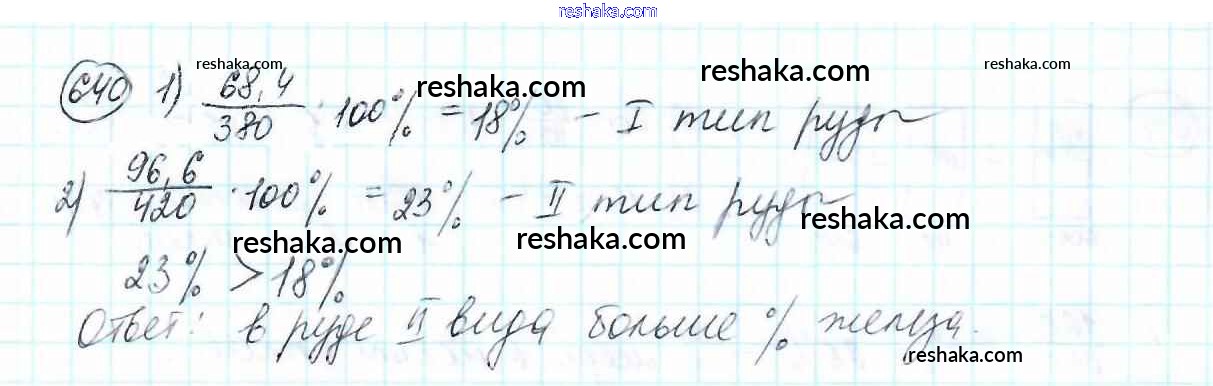 reshaka.com
640 1) 68,4/380 · 100% = 18% - I тип руды
reshaka.com reshaka.com reshaka.com reshaka.com
2) 96,6/420 · 100% = 23% - II тип руды
reshaka.com reshaka.com reshaka.com
23% > 18%
Ответ: в руде II вида больше % железа.
reshaka.com